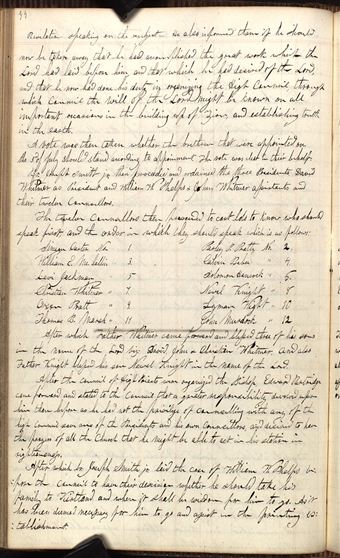 44
Revelation speaking on the subject. He also informed them if he should
now be taken away that he had accomplished the great work which the
Lord had laid before him, and that which he had desired of the Lord,
and that he now had done his duty in organizing the High Council through
which Council the will of the Lord might be known on all
important occasions in the building up of Zion, and establishing truth
in the earth.
A vote was then taken whether the brethren that were appointed on
the 3d July should stand according to appointment. The vote was clear in their behalf.
Jos. Smith jr. then proceeded and ordained the three Presidents David
Whitmer as President and William W. Phelps & John Whitmer assistants and
their twelve Councellors.
The twelve Councellors then proceeded to cast lots to know who should
speak first and the order in which they should speak which is as follows.
Simeon Carter No. 1
Parley P. Pratt No. 2
William E. McLellin 3
Calvin Bebee " 4
Levi Jackman " 5
Solomon Hancock "
Christian Whitmer " 7
Newel Knight " 8
Orson Pratt " 9
Lyman Wight " 10
Thomas B. Marsh " 11
John Murdock " 12
After which Father Whitmer came forward and blessed three of his sons
in the name of the Lord viz: David, John & Christian Whitmer. And also
Father Knight blessed his son Newel Knight in the name of the Lord.
After the council of High Priests were organized the Bishop, Edward Partridge
came forward and stated to the Council that a greater responsibility devolved upon
him than before as he has not the privilege of councilling with any of the
high council save any of the Presidents and his own Councillors, and desired to have
the prayers of all the Church that he might be able to act in his station in
righteousness.
After which br. Joseph Smith jr. laid the case of William W. Phelps be-
fore the council to have their decision whether he should take his
family to Kirtland and when it shall be wisdom for him to go. As it
has been deemed necessary for him to go and assist in the printing es-
tablishment.